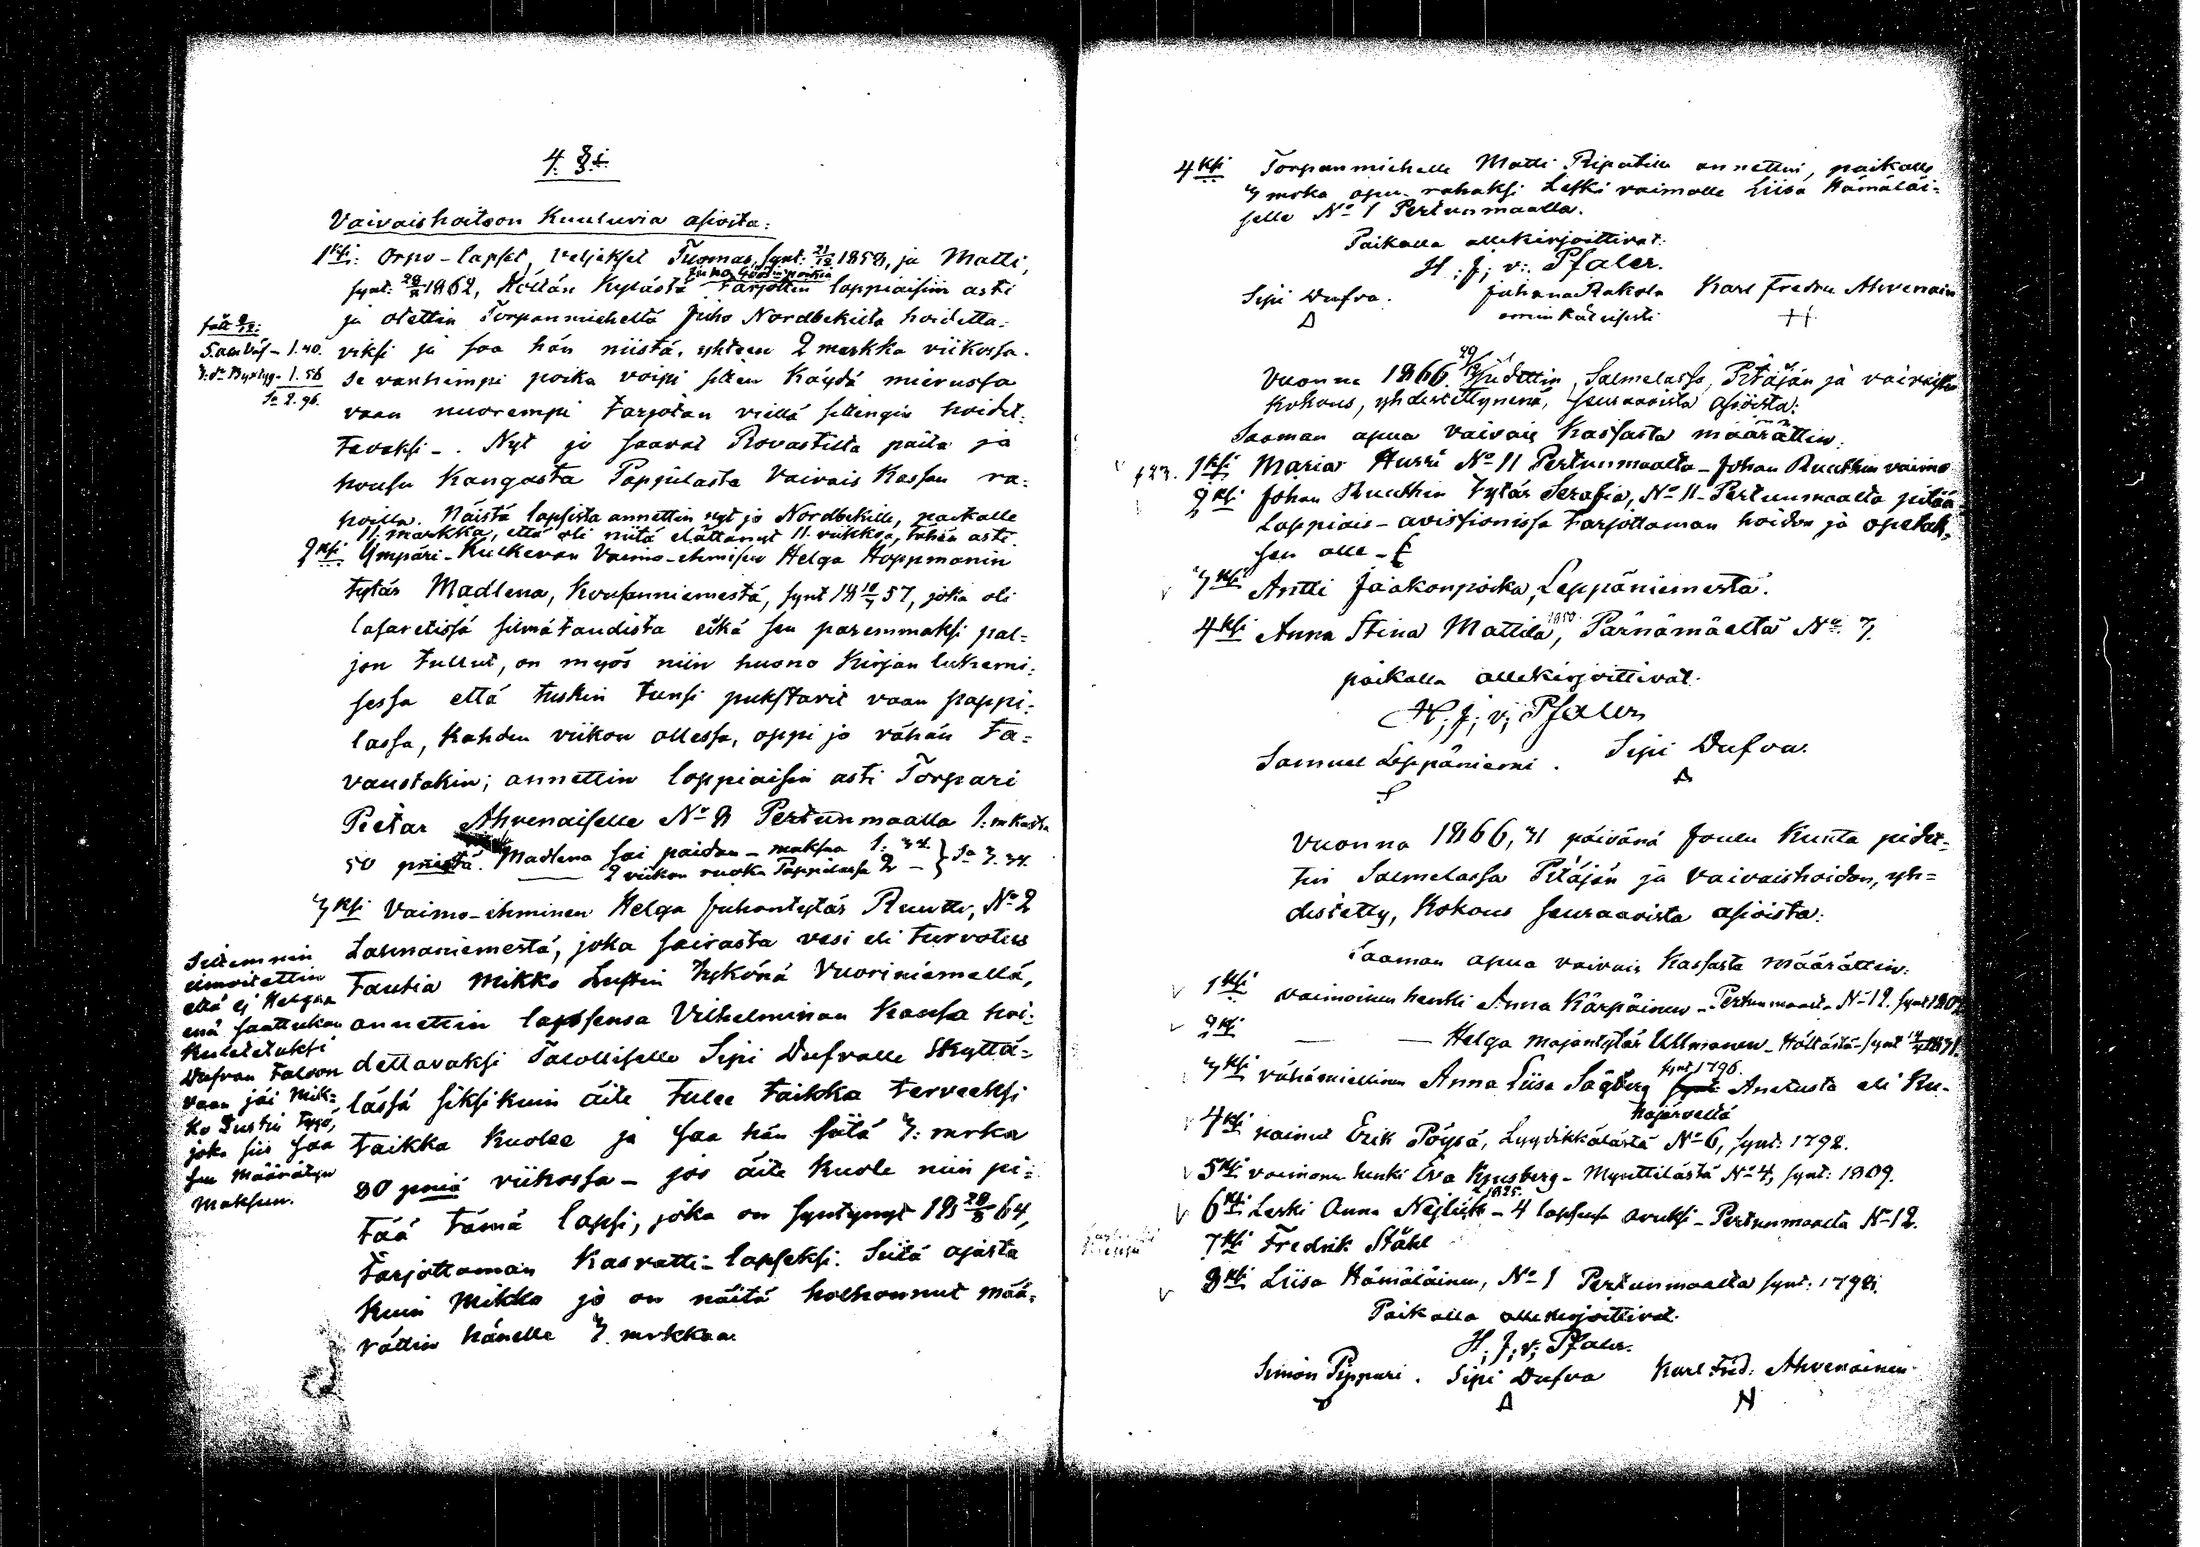 4. §i.
Vaivaishoitoon Kuuluvia asioita:
1ksi: Orpo-lapset, veljekset Tuomas, synt. 21/12 1858, ja Matti,
synt. 1862, Höltän Kylästä tarjottin loppiaisiin asti
ja otettin Torpanmieheltä Juho Nordbekilta hoidetta-
viksi ja saa hän niistä, yhteen 2 markka viikossa.
Se vanhempi poika voipi sitten Käydä mierussa
vaan nuorempi tarjotan viellä sillengin hoidet-
tavaksi -. Nyt jo saavat Rovastilta paita ja
housu Kangasta Pappilasta Vaivais Kassan ra-
hoilla. Näistä lapsista annettin nyt jo Nordbekille, paikalle
11 markka, että oli niitä elättänyt 11 viikkoa, tähän asti.
fått
5. aln - 1.40.
- 1.56
Sa 2.96.
2ksi Ympäri-Kulkevan Vaimo-ehmisen Helga Hoppmanin
tytär Madlena, Kousanniemestä, synt 18 57, joka oli
lasaretissä silmätaudista eikä sen paremmaksi pal-
jon tullut, on myös niin huono Kirjan lukemi-
sessa että tuskin tunsi pukstavit vaan pappi-
lassa, Kahden viikon ollessa, oppi jo vähän ta-
vaustakin; annettin loppiaisiin asti Torpari
Pietar Ahvenaiselle No 8 Pertunmaalla 1: mkasta
50 pnistä. Madlena sai paidan - maksaa 1: 34.
2 viikon ruoka Pappilassa 2 - } Sa 3. 34.
3ksi Vaimo-ihminen Helga Juhontytär Ruutti, No 2
Lasmaniemestä, joka sairasta vesi eli turvotus
tautia Mikko Lustin tykönä Vuoriniemellä,
annettin lapsensa Vilhelminan Kanssa hoi-
dettavaksi Talolliselle Sipi Dufvalle Skyttä-
lässä siksikuin äite tulee taikka terveeksi
taikka Kuolee ja saa hän siitä 3: mrka
80 pniä viikossa - jos äite Kuole niin pi-
tää tämä lapsi, joka on syntynyt 18 28/8 64,
tarjottaman Kasvatti-lapseksi. Siitä ajasta
Kuin Mikko jo on näitä holhonnut mää-
rättin hänelle 3. mrkkaa.
Sittemmin
ilmoitettin
että ej Helgaa
enä saattukan
Kuletetuksi
Dufvan taloon
vaan jäi Mik-
ko Lustin tygö,
joka siis saa
sen määrätyn
Maksun.
4ksi Torpanmiehelle Matti Ripatilla annettin, paikalle
3 mrka apu-rahaksi Leski vaimolle Liisa Hämäläi-
selle No 1 Pertunmaalla.
Paikalla allekirjoittivat:
H; J; v: Pfaler.
Sipi Dufva. Juhana Rakola Karl Fredrik Ahvenain
omin Kätisesti
Vuonna 1866, pidettin, Salmelassa, Pitäjän ja vaivaisten
Kokous, yhdistettynenä, seuraavista asioista:
Saaman apua Vaivais Kassasta määrättin:
1ksi Maria Hurri No 11 Pertunmaalta - Johan Ruuthin vaimo
2ksi Johan Ruuthin tytär Serafia, No 11 - Pertunmaalta pitää
Loppiais-avissionissa tarjottaman hoidon ja opetuk-
sen alle -
3ksi Antti Jaakonpoika, Leppäniemestä.
4ksi Anna Stina Mattila, 1850. Pärnämäeltä No 3.
paikalla allekirjoittivat:
H; J; v; Pfaler
Samuel Leppäniemi. Sipi Dufva.
Vuonna 1866, 31 päivänä Joulu Kuuta pidet-
tin Salmelassa Pitäjän ja Vaivaishoidon, yh-
distetty, Kokous seuraavista asioista:
Saaman apua vaivais Kassasta määrättin:
1ksi vaimoinen henki Anna Kärpäinen - Pertunmaalta No 12. synt 180
2ksi — — Helga Majantytär Ullmanen - Höltästä - synt
3ksi vähämiellinen Anna Liisa Sågberg synt 1796. Anetusta eli Ku-
hajärveltä
4ksi nainut Erik Pöysä, Lyydikkälästä No 6, synt: 1792.
5ksi vaimonen henki Eva - Mynttilästä No 4, synt: 1809.
6ksi Leski Anna 1825. - 4 lapsensa avuksi - Pertunmaalta No 12.
7ksi Fredrik Ståhl
8ksi Liisa Hämäläinen, No 1 Pertunmaalta synt: 179
Paikalla allekirjoittivat:
H; J; v; Pfaler.
Simon Pippuri. Sipi Dufva Karl Frid: Ahvenainen